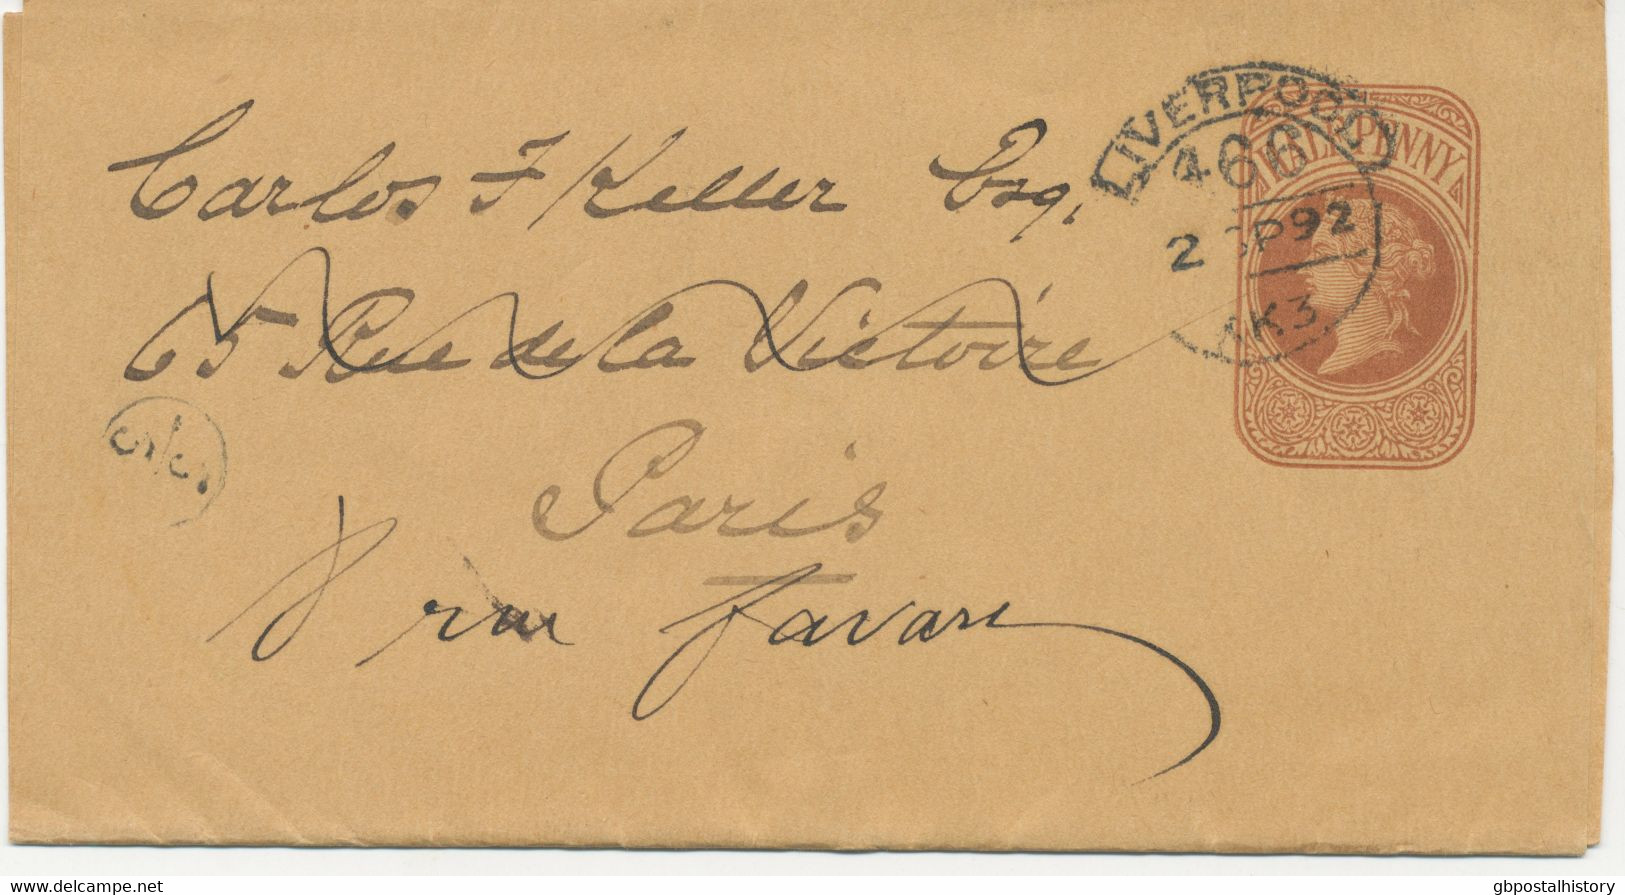 Carlos F Keller Esq.
65 Rue de la Victoire
Paris
8 rue Favart
LIVERPOOL
466
2 SP 92
AK3
HALFPENNY
www.delcampe.net
gbpostalhistory